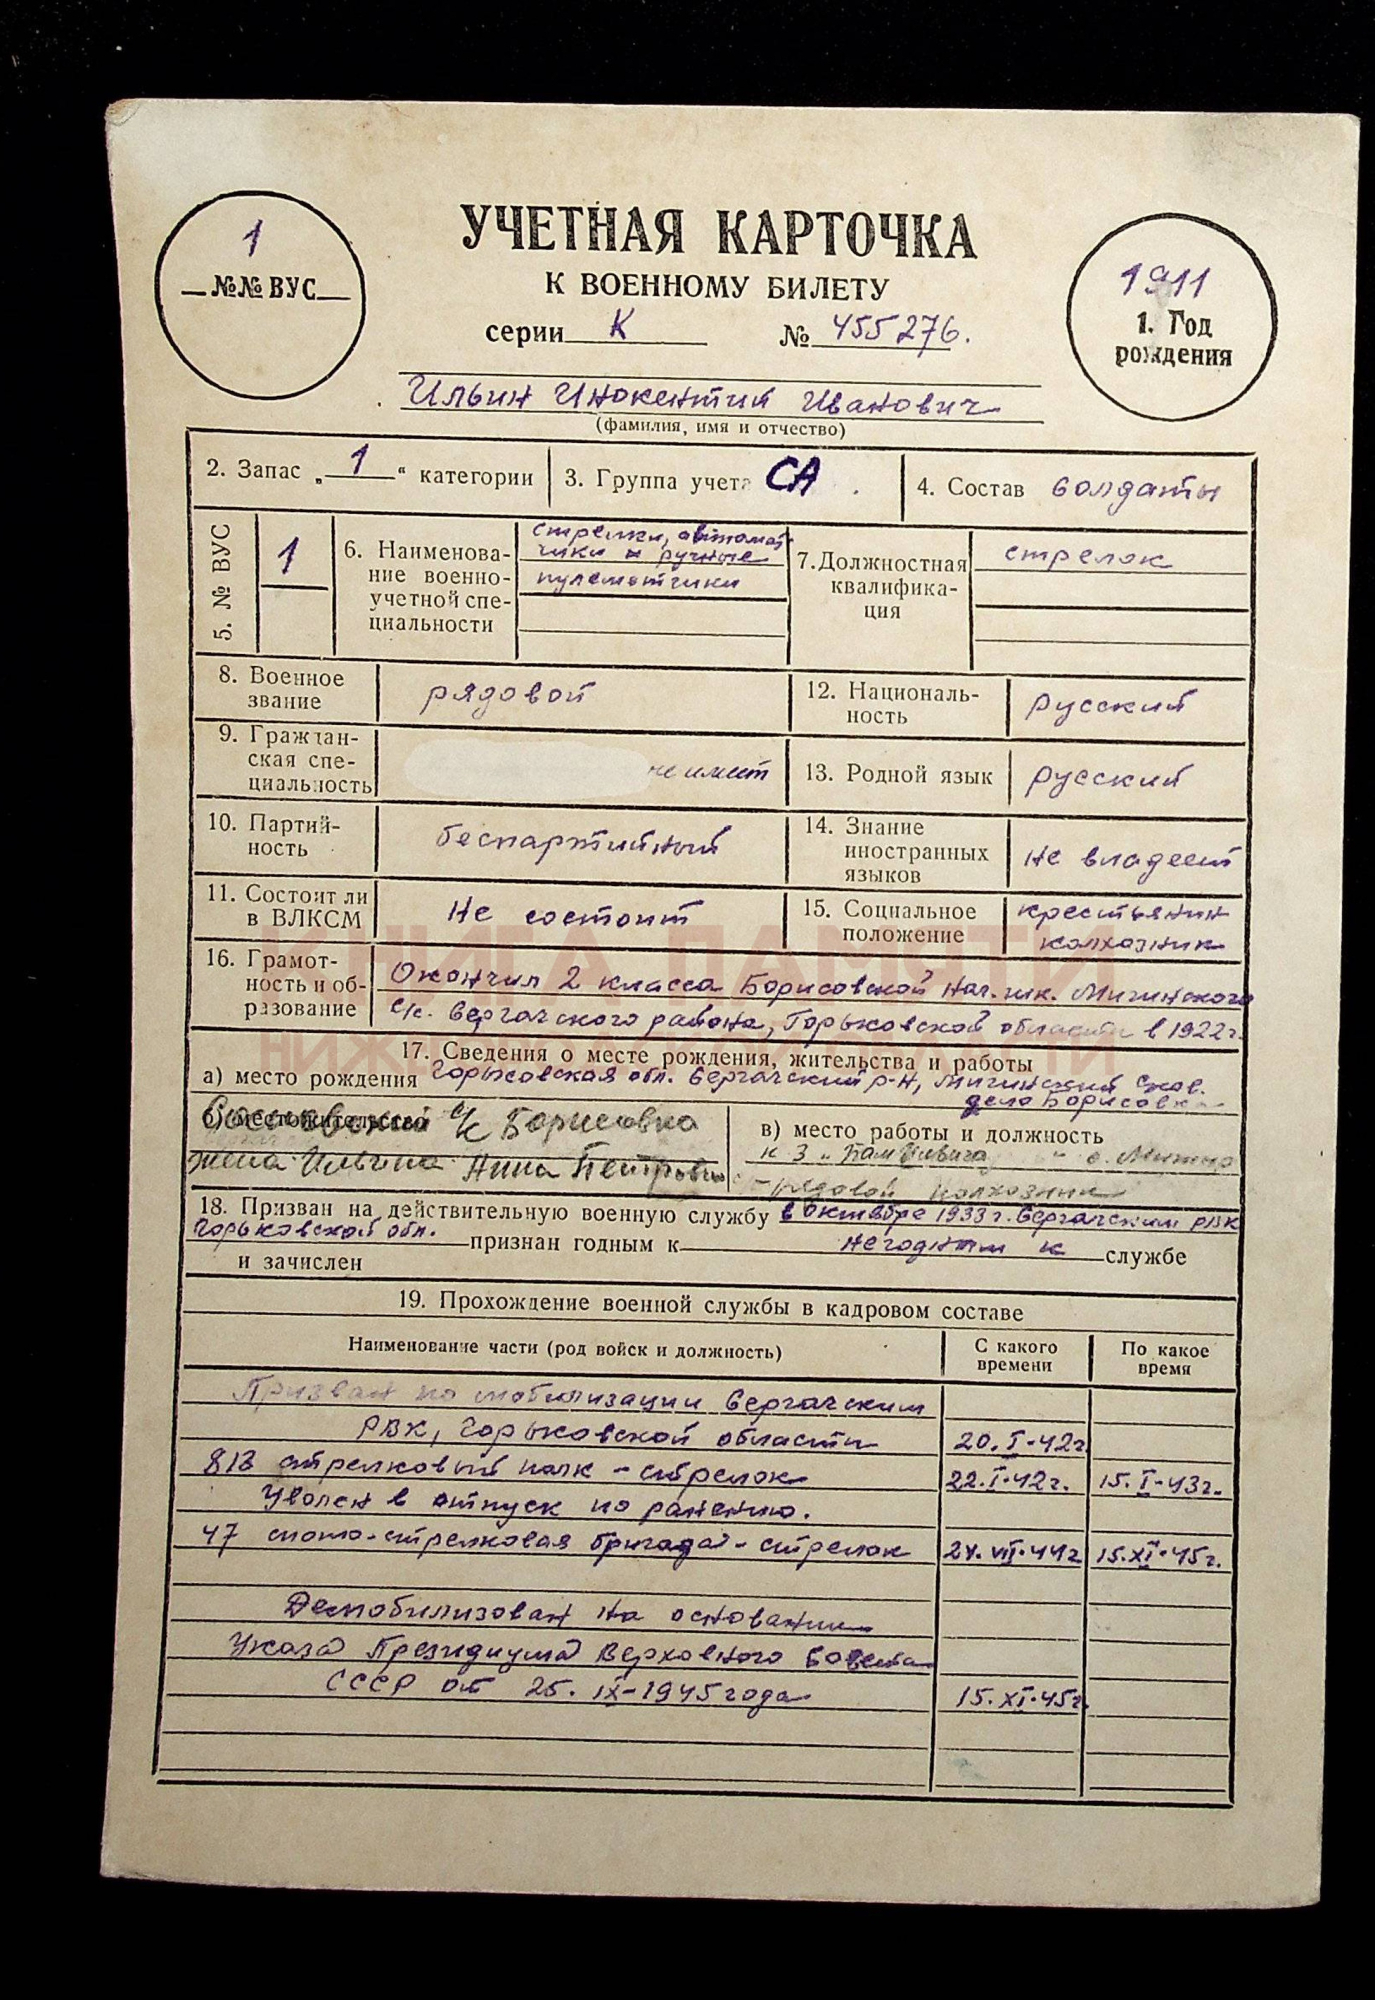 УЧЕТНАЯ КАРТОЧКА
К ВОЕННОМУ БИЛЕТУ
серии К № 455276.
1
№№ ВУС
1911
1. Год
рождения
Ильин Инокентий Иванович
(фамилия, имя и отчество)
2. Запас „ 1 “ категории
3. Группа учета СА
4. Состав солдаты
5. № ВУС
1
6. Наименова-
ние военно-
учетной спе-
циальности
стрелки, автомат-
чики и ручные
пулеметчики
7. Должностная
квалифика-
ция
стрелок
8. Военное
звание
рядовой
12. Националь-
ность
русский
9. Граждан-
ская спе-
циальность
не имеет
13. Родной язык
русский
10. Партий-
ность
беспартийный
14. Знание
иностранных
языков
не владеет
11. Состоит ли
в ВЛКСМ
Не состоит
15. Социальное
положение
крестьянин
колхозник
16. Грамот-
ность и об-
разование
Окончил 2 класса Борисовской нач. шк. Мигинского
с/с. Сергачского района, Горьковской области в 1922г.
КНИГА ПАМЯТИ
НИЖЕГОРОДСКОЙ ОБЛАСТИ
17. Сведения о месте рождения, жительства и работы
а) место рождения Горьковская обл. Сергачский р-н, Мигинский с/сов.
село Борисовка
б) местожительство
с/с Борисовка
жена Ильина Анна Петровна
в) место работы и должность
к-з
рядовой колхозник
18. Призван на действительную военную службу в октябре 1933г. Сергачским РВК
Горьковской обл. признан годным к негодным к службе
и зачислен
19. Прохождение военной службы в кадровом составе
Наименование части (род войск и должность)
С какого
времени
По какое
время
Призван по мобилизации Сергачским
РВК, Горьковской области 20.I-42г
813 стрелковый полк - стрелок 22.I-42г. 15.I-43г.
Уволен в отпуск по ранению.
47 мото-стрелковая бригада - стрелок 24.VII-44г 15.XI-45г.
Демобилизован на основании
Указа Президиума Верховного Совета
СССР от 25.IX-1945 года 15.XI-45г.